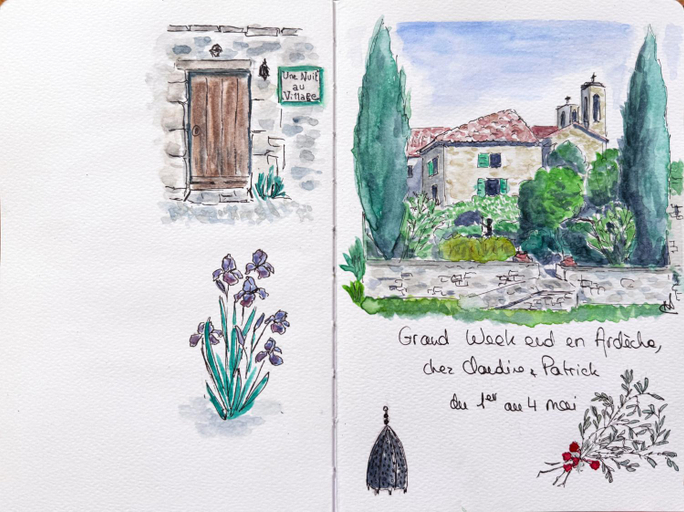 Une Nuit
au
Village
Grand Week end en Ardèche,
chez Claudine & Patrick
du 1er au 4 mai